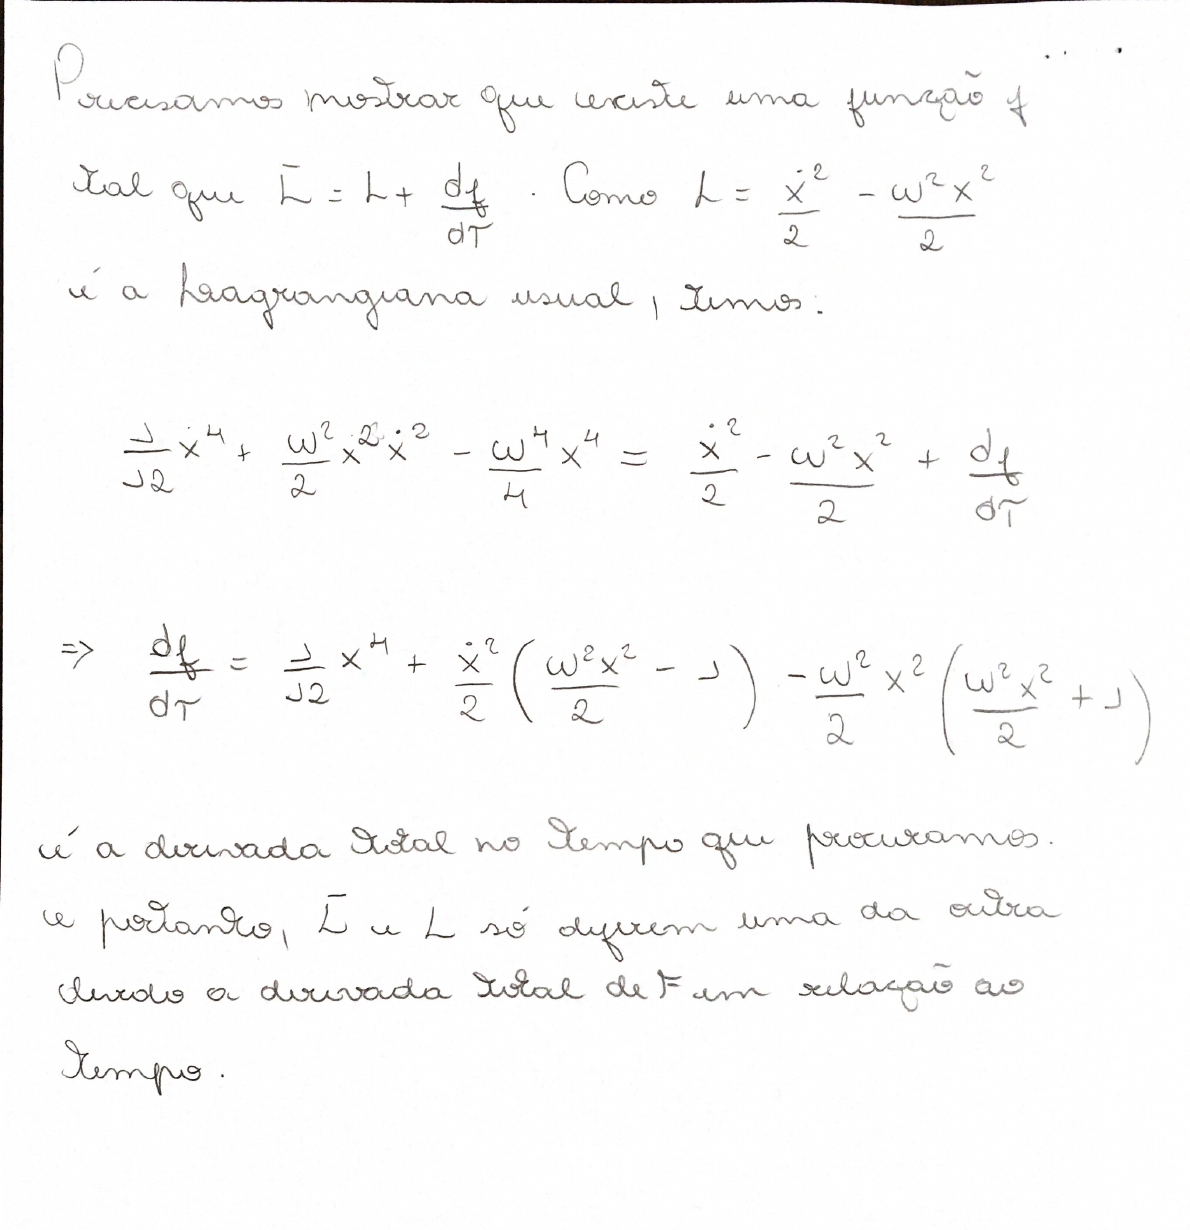 Precisamos mostrar que existe uma função f
tal que L̄ = L + df/dT . Como L = ẋ²/2 - ω²x²/2
é a Lagrangiana usual, temos:
1/12 ẋ⁴ + ω²/2 x²ẋ² - ω⁴/4 x⁴ = ẋ²/2 - ω²x²/2 + df/dT
=> df/dT = 1/12 x⁴ + ẋ²/2 (ω²x²/2 - 1) - ω²/2 x² (ω²x²/2 + 1)
é a derivada total no tempo que procuramos.
e portanto, L̄ e L só diferem uma da outra
devido a derivada total de F em relação ao
tempo.